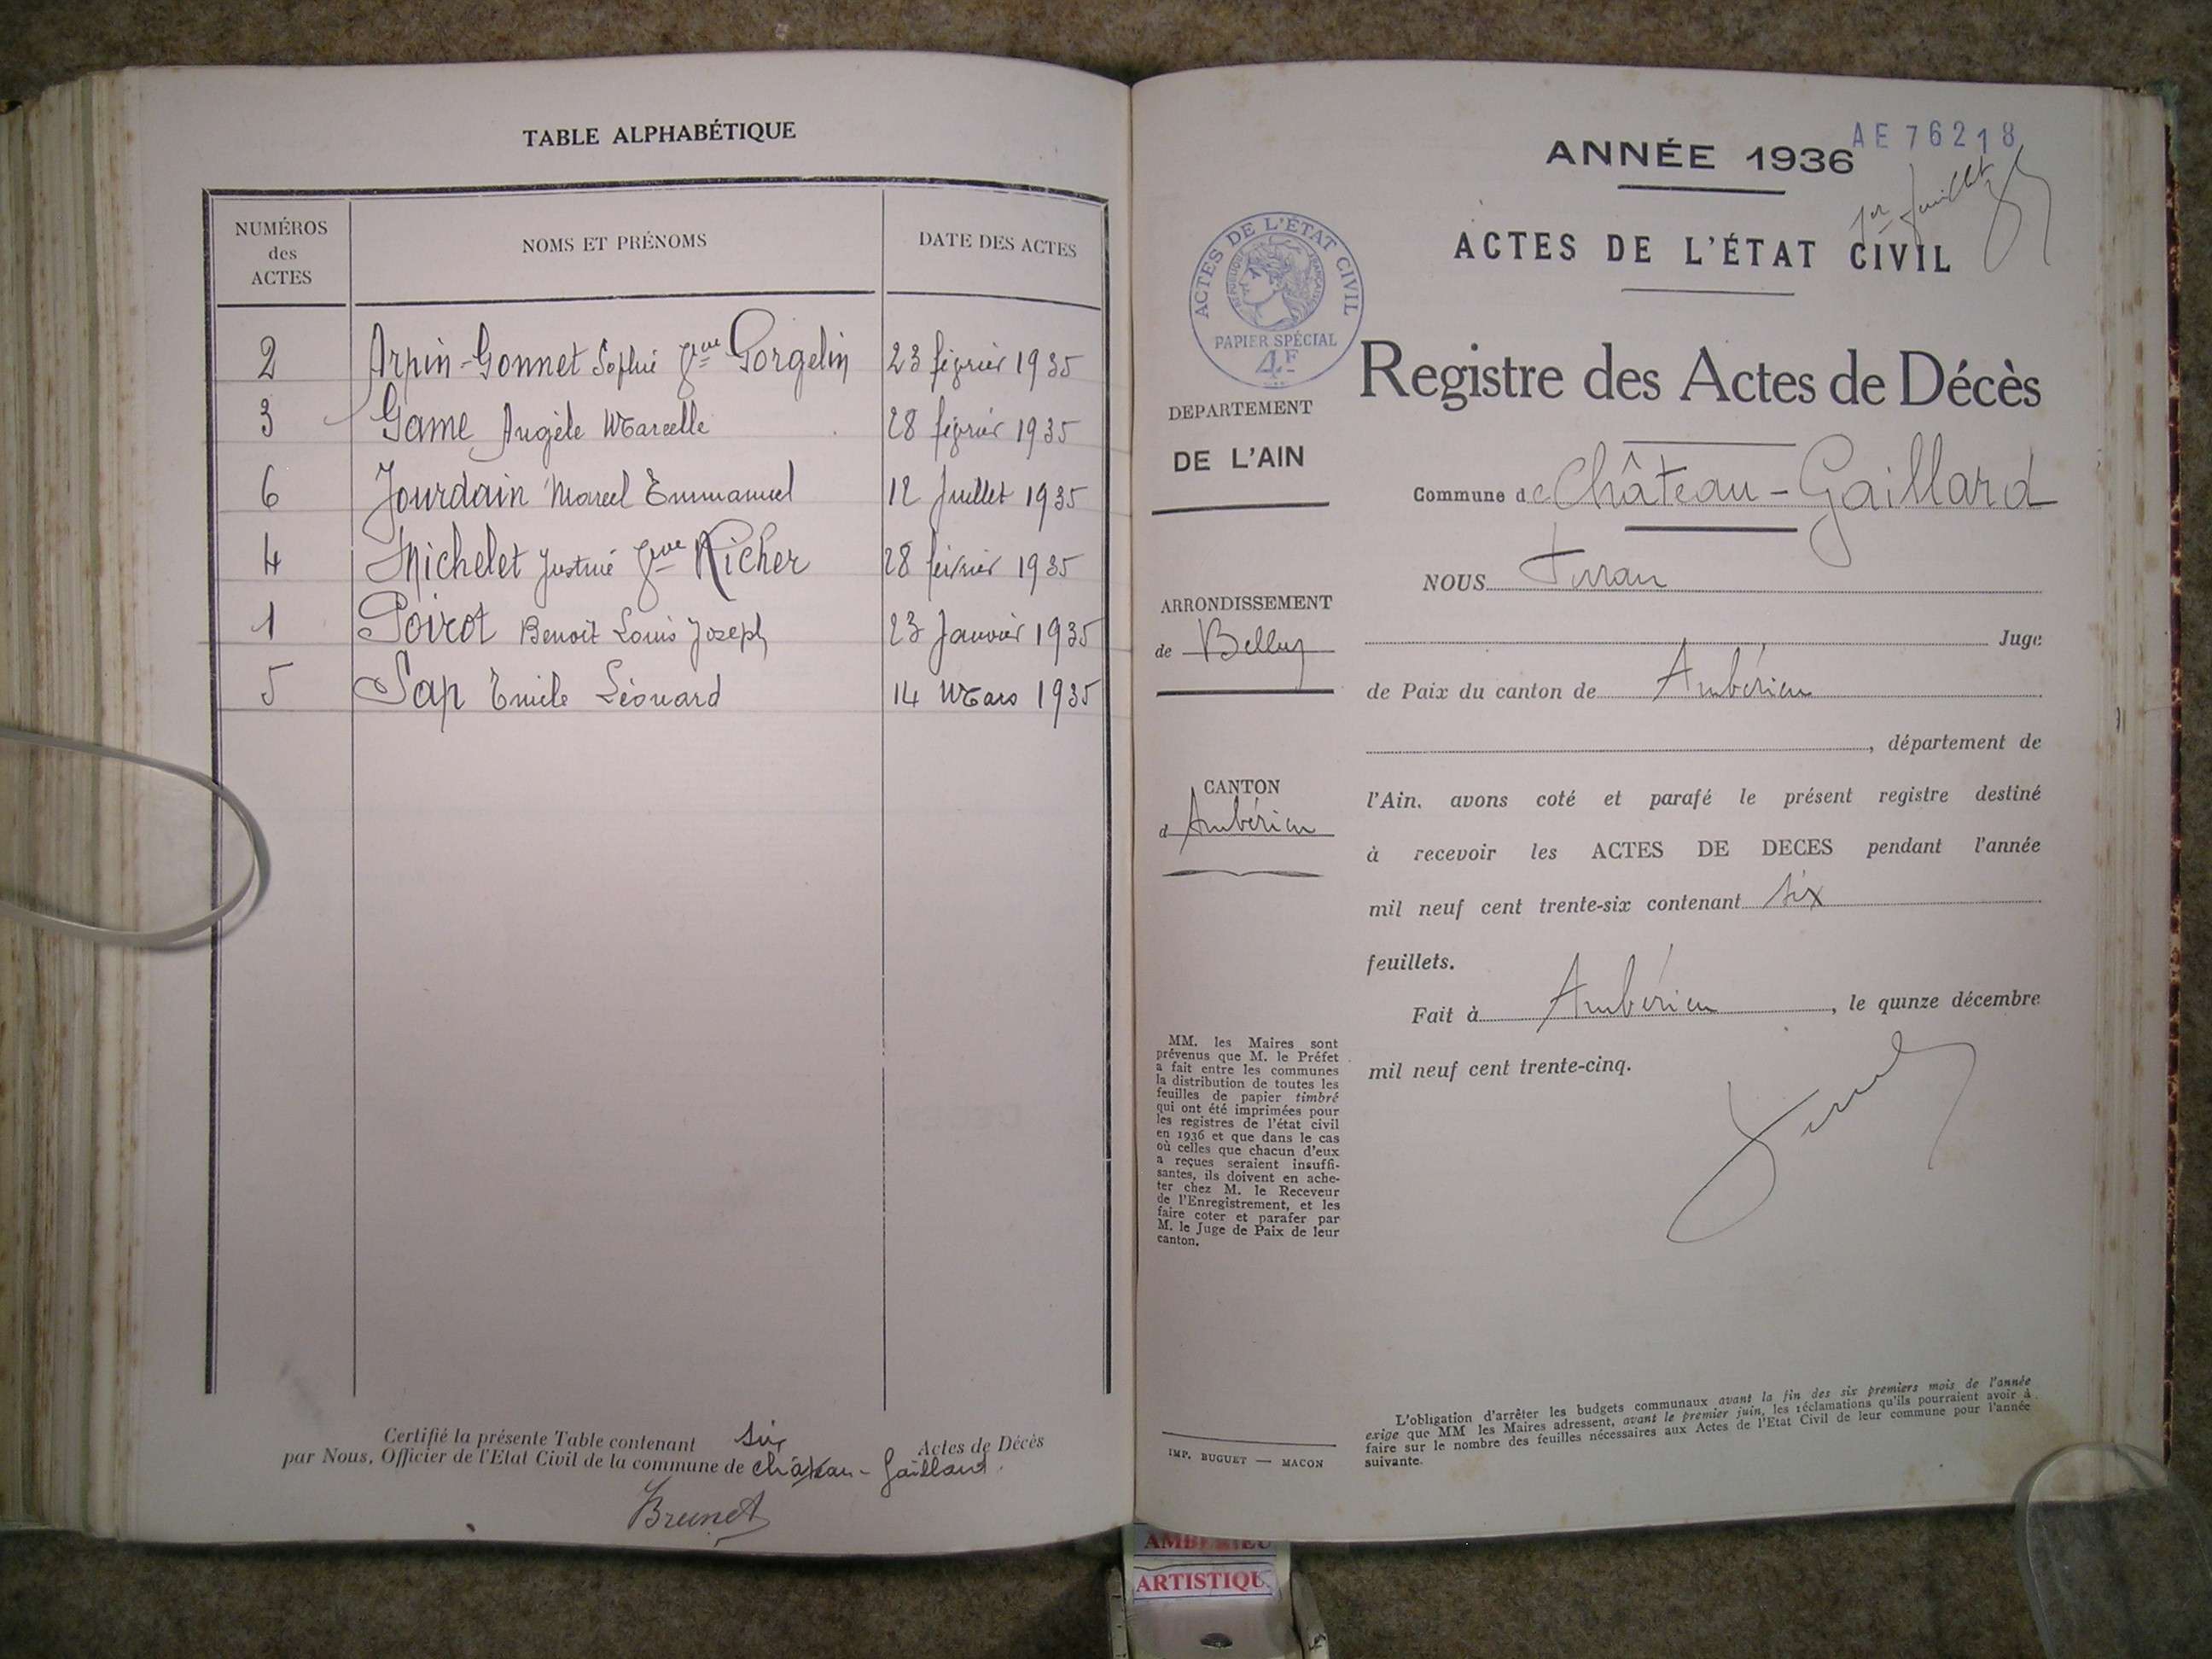 TABLE ALPHABÉTIQUE
NUMÉROS
des
ACTES
NOMS ET PRÉNOMS
DATE DES ACTES
2 Arpin-Gonnet Sophie Vve Gorgelin 23 février 1935
3 Game Angèle Marcelle 28 février 1935
6 Jourdain Marcel Emmanuel 12 Juillet 1935
4 Michelet Justine Vve Richer 28 février 1935
1 Poirot Benoit Louis Joseph 23 Janvier 1935
5 Sap Emile Léonard 14 Mars 1935
Certifié la présente Table contenant six Actes de Décès
par Nous, Officier de l'Etat Civil de la commune de Château-Gaillard.
Brunet
AE 76218
ANNÉE 1936
1er feuillet
ACTES DE L'ÉTAT CIVIL
ACTES DE L'ÉTAT CIVIL
RÉPUBLIQUE FRANÇAISE
PAPIER SPÉCIAL
4F
Registre des Actes de Décès
DEPARTEMENT
DE L'AIN
Commune de Château-Gaillard
NOUS
ARRONDISSEMENT
de Belley
Juge
de Paix du canton de Ambérieu
, département de
CANTON
d Ambérieu
l'Ain, avons coté et parafé le présent registre destiné
à recevoir les ACTES DE DECES pendant l'année
mil neuf cent trente-six contenant six
feuillets.
Fait à Ambérieu, le quinze décembre
mil neuf cent trente-cinq.
MM. les Maires sont
prévenus que M. le Préfet
a fait entre les communes
la distribution de toutes les
feuilles de papier timbré
qui ont été imprimées pour
les registres de l'état civil
en 1936 et que dans le cas
où celles que chacun d'eux
a reçues seraient insuffi-
santes, ils doivent en ache-
ter chez M. le Receveur
de l'Enregistrement, et les
faire coter et parafer par
M. le Juge de Paix de leur
canton.
L'obligation d'arrêter les budgets communaux avant la fin des six premiers mois de l'année
exige que MM les Maires adressent, avant le premier juin, les réclamations qu'ils pourraient avoir à
faire sur le nombre des feuilles nécessaires aux Actes de l'Etat Civil de leur commune pour l'année
suivante.
IMP. BUGUET — MACON
AMBERIEU
ARTISTIQU